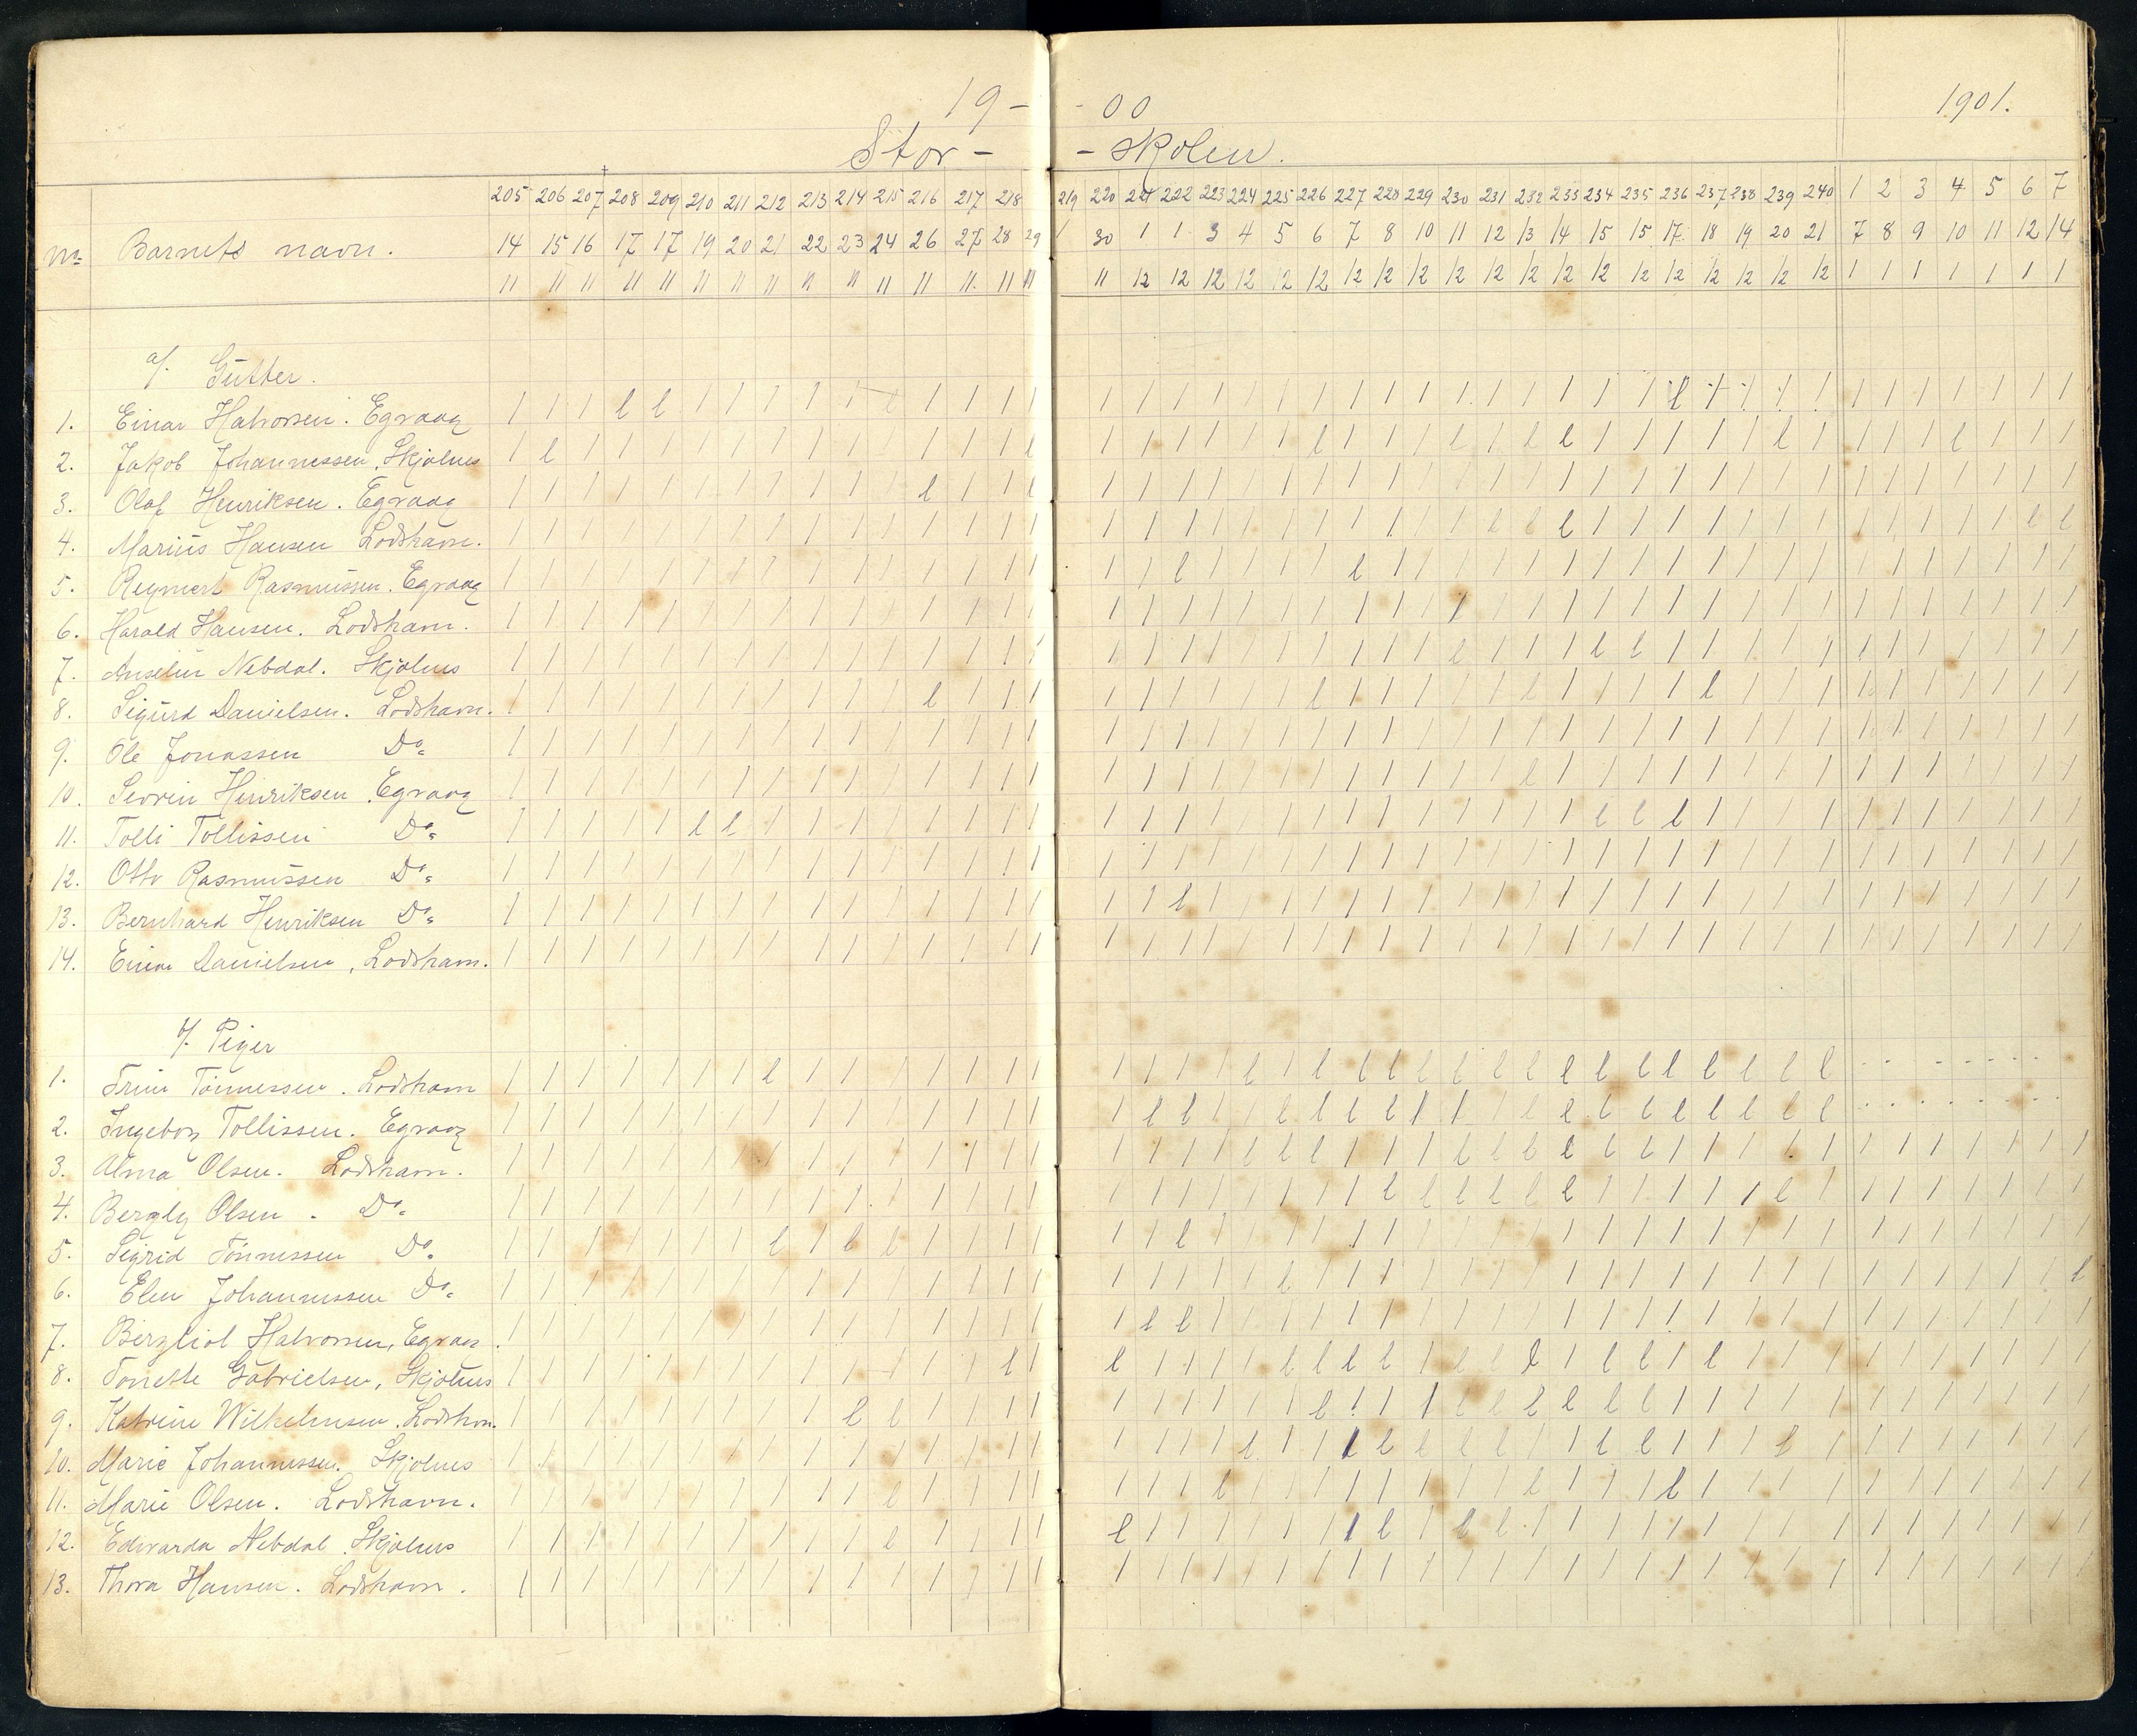 19- -00 1901.
Stor- -skolen.
205 206 207 208 209 210 211 212 213 214 215 216 217 218 219 220 221 222 223 224 225 226 227 228 229 230 231 232 233 234 235 236 237 238 239 240 1 2 3 4 5 6 7
No Barnets navn. 14 15 16 17 17 19 20 21 22 23 24 26 27 28 29 30 1 1 3 4 5 6 7 8 10 11 12 13 14 15 15 17 18 19 20 21 7 8 9 10 11 12 14
11 11 11 11 11 11 11 11 11 11 11 11 11 11 11 11 12 12 12 12 12 12 12 12 12 12 12 12 12 12 12 12 12 12 12 12 1 1 1 1 1 1 1
a/. Gutter.
1. Einar Halvorsen. Egvaag
2. Jakob Johannessen, Skjolnes
3. Olaf Henriksen. Egvaag
4. Marius Hansen Lodshavn.
5. Reymert Rasmussen. Egvaag
6. Harald Hansen. Lodshavn.
7. Anselm Nebdal. Skjolnes
8. Sigurd Danielsen. Lodshavn.
9. Ole Jonassen Do
10. Severin Henriksen Egvaag
11. Tolli Tollissen Do
12. Otto Rasmussen Do
13. Bernhard Henriksen Do
14. Einar Danielsen, Lodshavn.
b/. Piger
1. Trine Tönnessen. Lodshavn
2. Ingeborg Tollissen. Egvaag
3. Alma Olsen. Lodshavn.
4. Bergly Olsen. Do
5. Sigrid Tönnessen Do
6. Elen Johannessen Do
7. Bergliot Halvorsen, Egvaag.
8. Tonette Gabrielsen, Skjolnes
9. Katrine Wilhelmsen. Lodshvn.
10. Marie Johannessen. Skjolnes
11. Marie Olsen. Lodshavn.
12. Edvarda Nebdal. Skjolnes
13. Thora Hansen. Lodshavn.